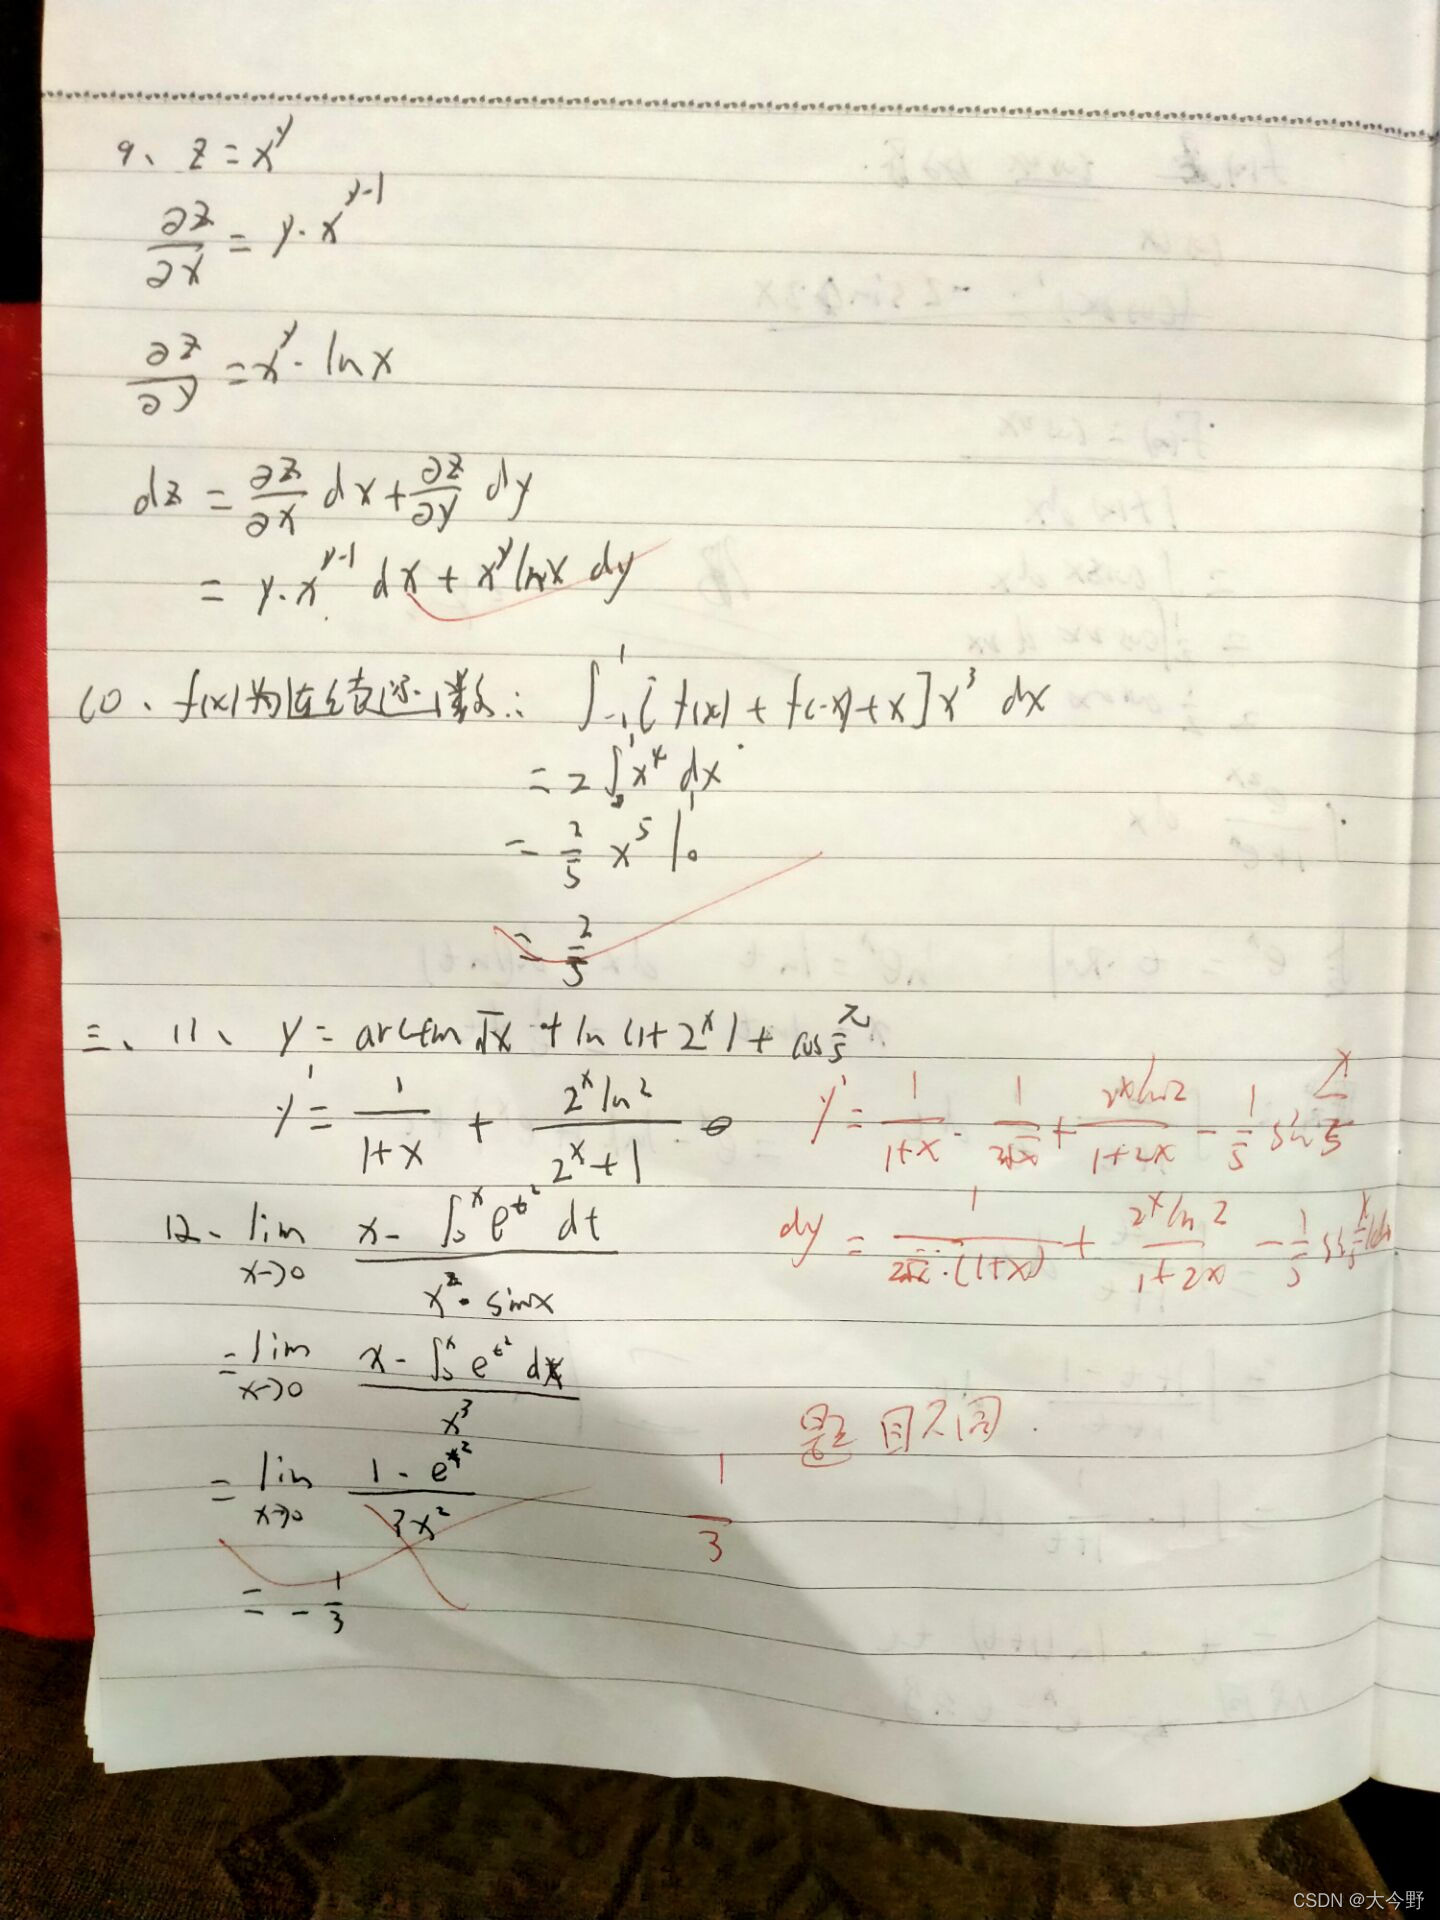 9、 z = x^y
∂z/∂x = y·x^{y-1}
∂z/∂y = x^y·lnx
dz = ∂z/∂x dx + ∂z/∂y dy
= y·x^{y-1} dx + x^y lnx dy
10、f(x)为连续函数: ∫_{-1}^{1} [f(x) + f(-x) + x] x^3 dx
= 2∫_0^1 x^4 dx
= 2/5 x^5 |_0^1
= 2/5
三、11、 y = arctan √x + ln(1+2^x) + cos π/5
y' = 1/(1+x) + 2^x ln2/(2^x+1)
y' = 1/(1+x) · 1/(2√x) + 2^x ln2/(1+2x) - 1/5 sin x/5
12、 lim_{x→0} (x - ∫_0^x e^{t^2} dt)/(x^2·sinx)
dy = 1/(2√x·(1+x)) + 2^x ln2/(1+2x) - 1/5
= lim_{x→0} (x - ∫_0^x e^{t^2} dx)/x^3
题目不同.
= lim_{x→0} (1 - e^{x^2})/(3x^2)
1/3
= -1/3
CSDN @大今野